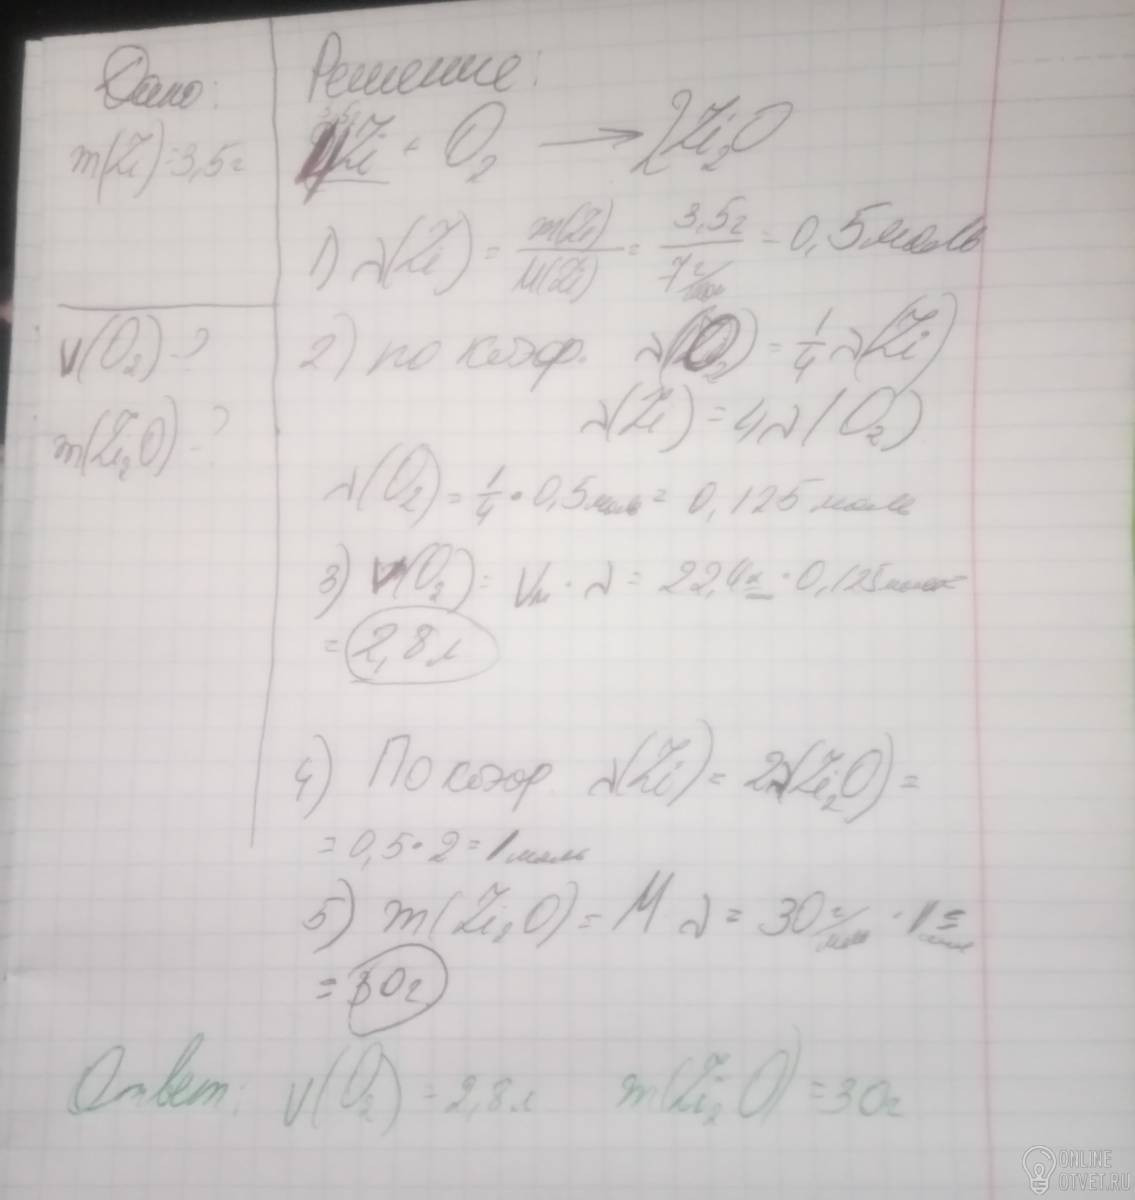 Дано:
m(Li)=3,5г
V(O₂)-?
m(Li₂O)-?
Решение:
3,5г
4Li + O₂ → 2Li₂O
1) ν(Li) = m(Li)/M(Li) = 3,5г/7г/моль = 0,5моль
2) по коэф. ν(O₂) = 1/4 ν(Li)
ν(Li) = 4ν(O₂)
ν(O₂) = 1/4 · 0,5моль = 0,125моль
3) V(O₂) = Vm · ν = 22,4л · 0,125моль=
= 2,8л
4) По коэф. ν(Li) = 2ν(Li₂O) =
= 0,5·2 = 1моль
5) m(Li₂O) = M ν = 30г/моль · 1моль =
= 30г
Ответ: V(O₂) = 2,8л m(Li₂O) = 30г
ONLINE
OTVET.RU